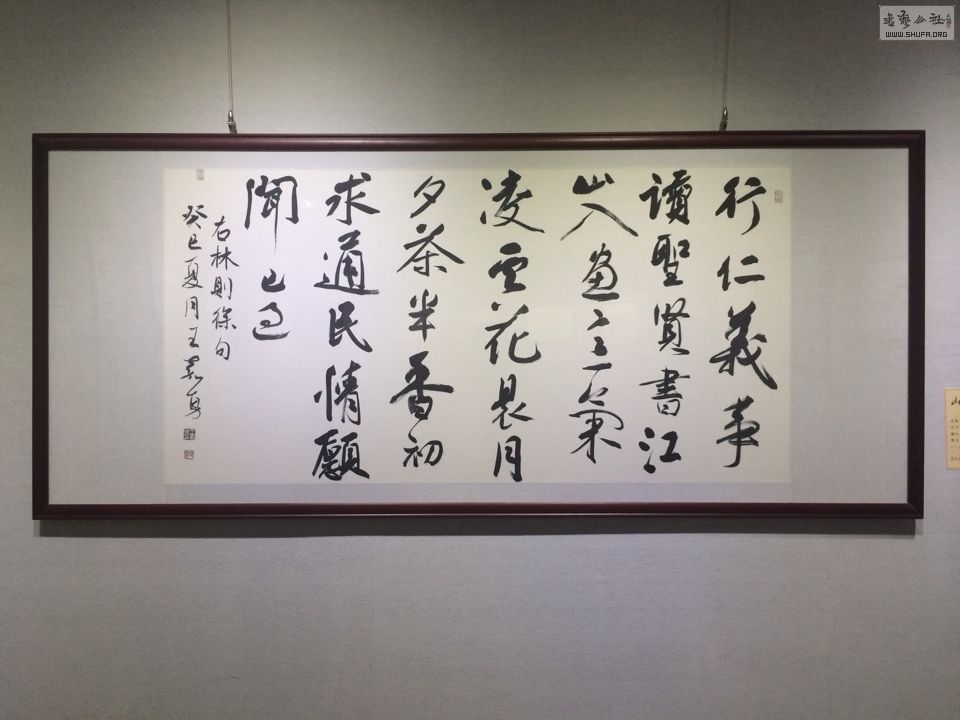 行仁義事
讀聖賢書江
山入畫志氣
凌雲花晨月
夕茶半香初
求通民情願
聞己過
右林則徐句
癸巳夏月王
書藝公社
WWW.SHUFA.ORG